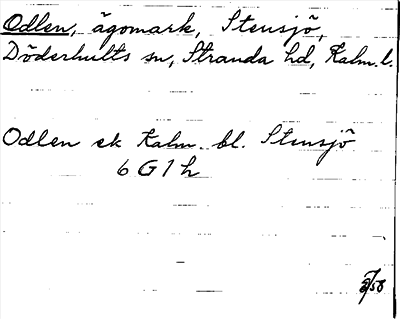 Odlen, ägomark, Stensjö,
Döderhults sn, Stranda hd, Kalm. l.
Odlen ek Kalm. bl. Stensjö
6 G 1 h